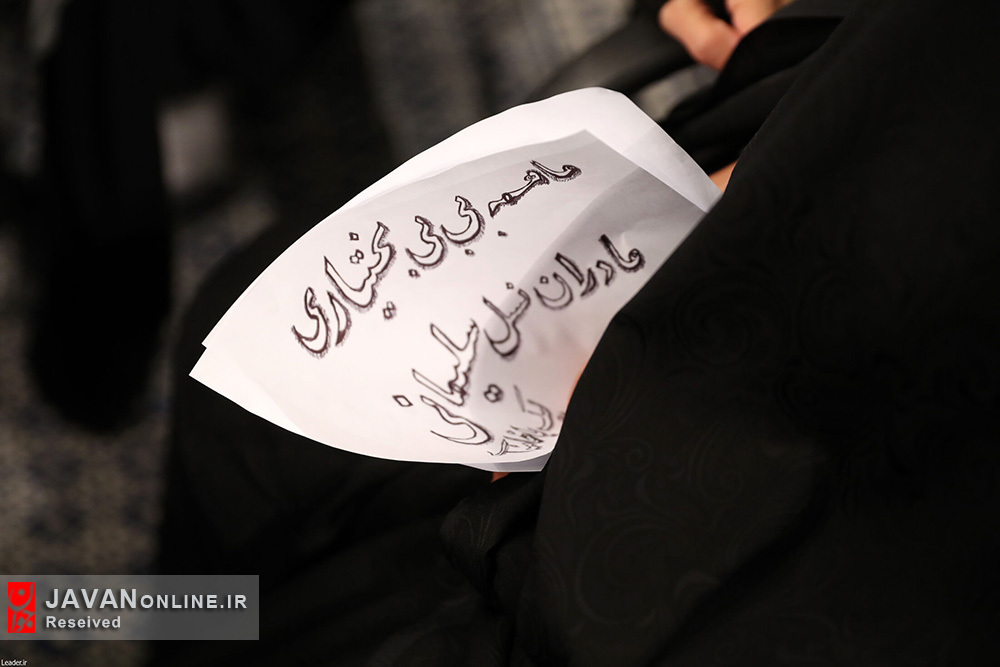 ما همه بی بی بختیاری
مادران نسل سلیمانی
JAVANONLINE.IR
Reseived
Leader.ir